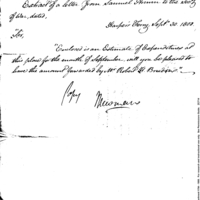 Extract of a letter from Samuel Annin to the Secy
of War, dated,
Harpers Ferry Sept. 30. 1800.
Sir,
"Enclosed is an Estimate of Expenditures at
this place for the month of September. will you be pleased to
have the amount forwarded by Mr Robert G.
Copy